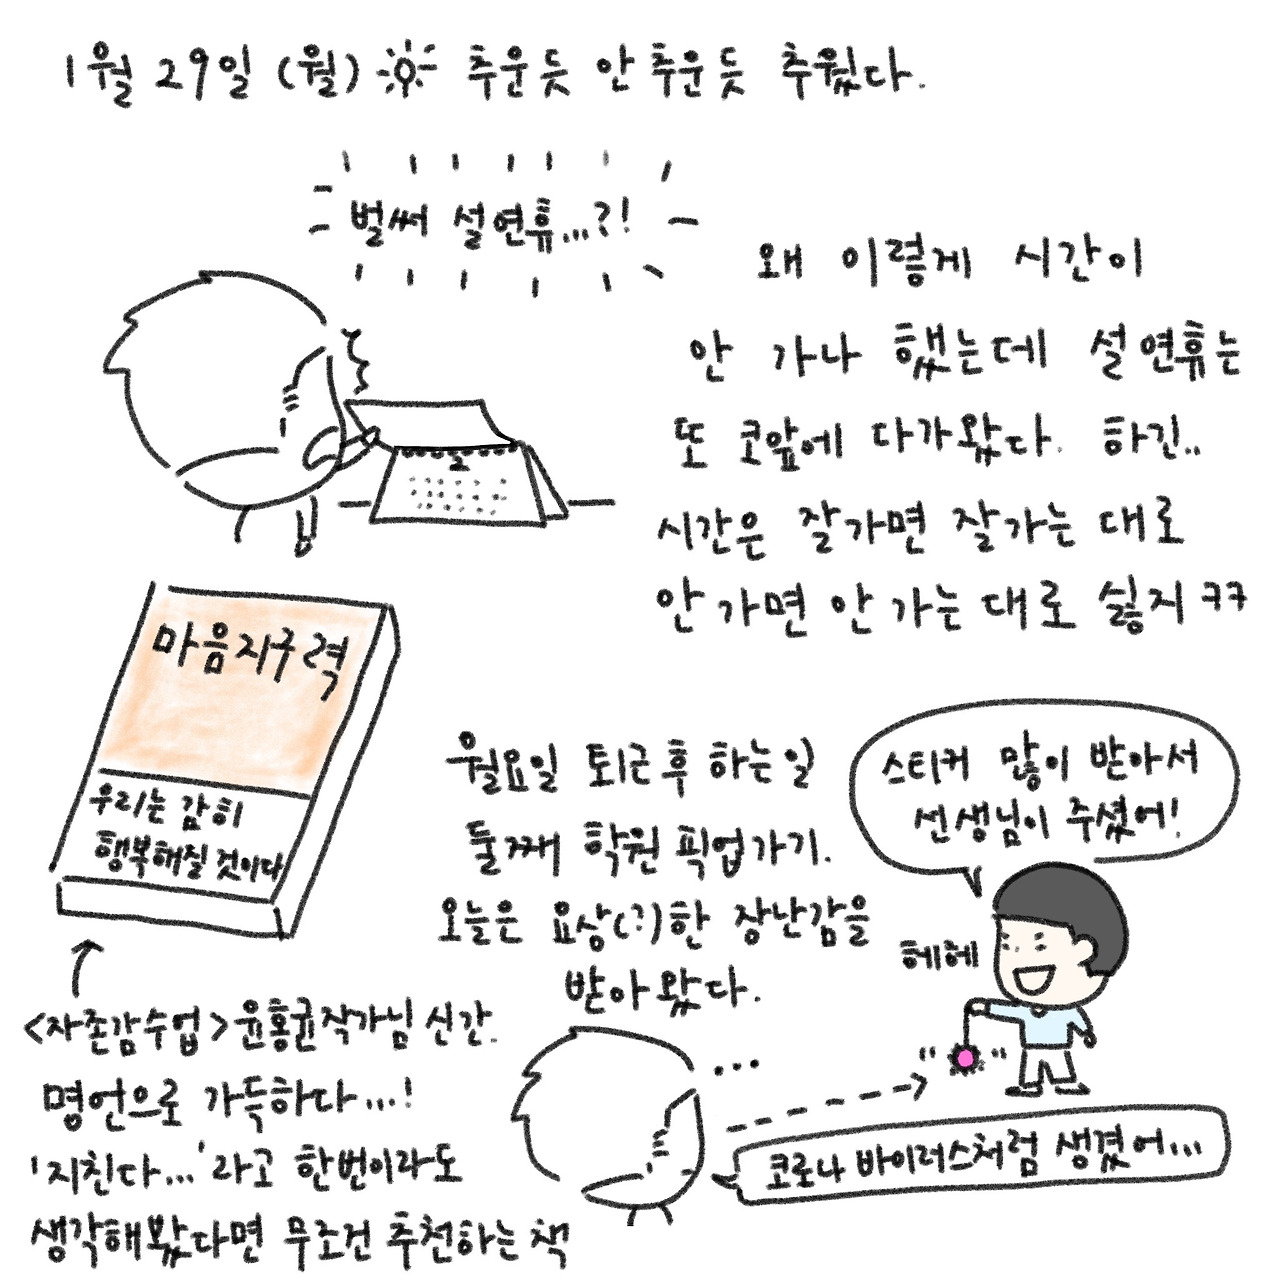 1월 29일 (월) 추운듯 안추운듯 추웠다.
벌써 설연휴...?!
왜 이렇게 시간이
안 가나 했는데 설연휴는
또 코앞에 다가왔다. 하긴..
시간은 잘가면 잘가는 대로
안가면 안 가는 대로 싫지 ㅋㅋ
2
마음지구력
우리는 감히
행복해질 것이다
<자존감수업> 윤홍균작가님 신간.
명언으로 가득하다...!
'지친다...'라고 한번이라도
생각해봤다면 무조건 추천하는 책
월요일 퇴근 후 하는 일
둘째 학원 픽업가기.
오늘은 요상(?)한 장난감을
받아왔다.
스티커 많이 받아서
선생님이 주셨어!
헤헤
...
코로나 바이러스처럼 생겼어...